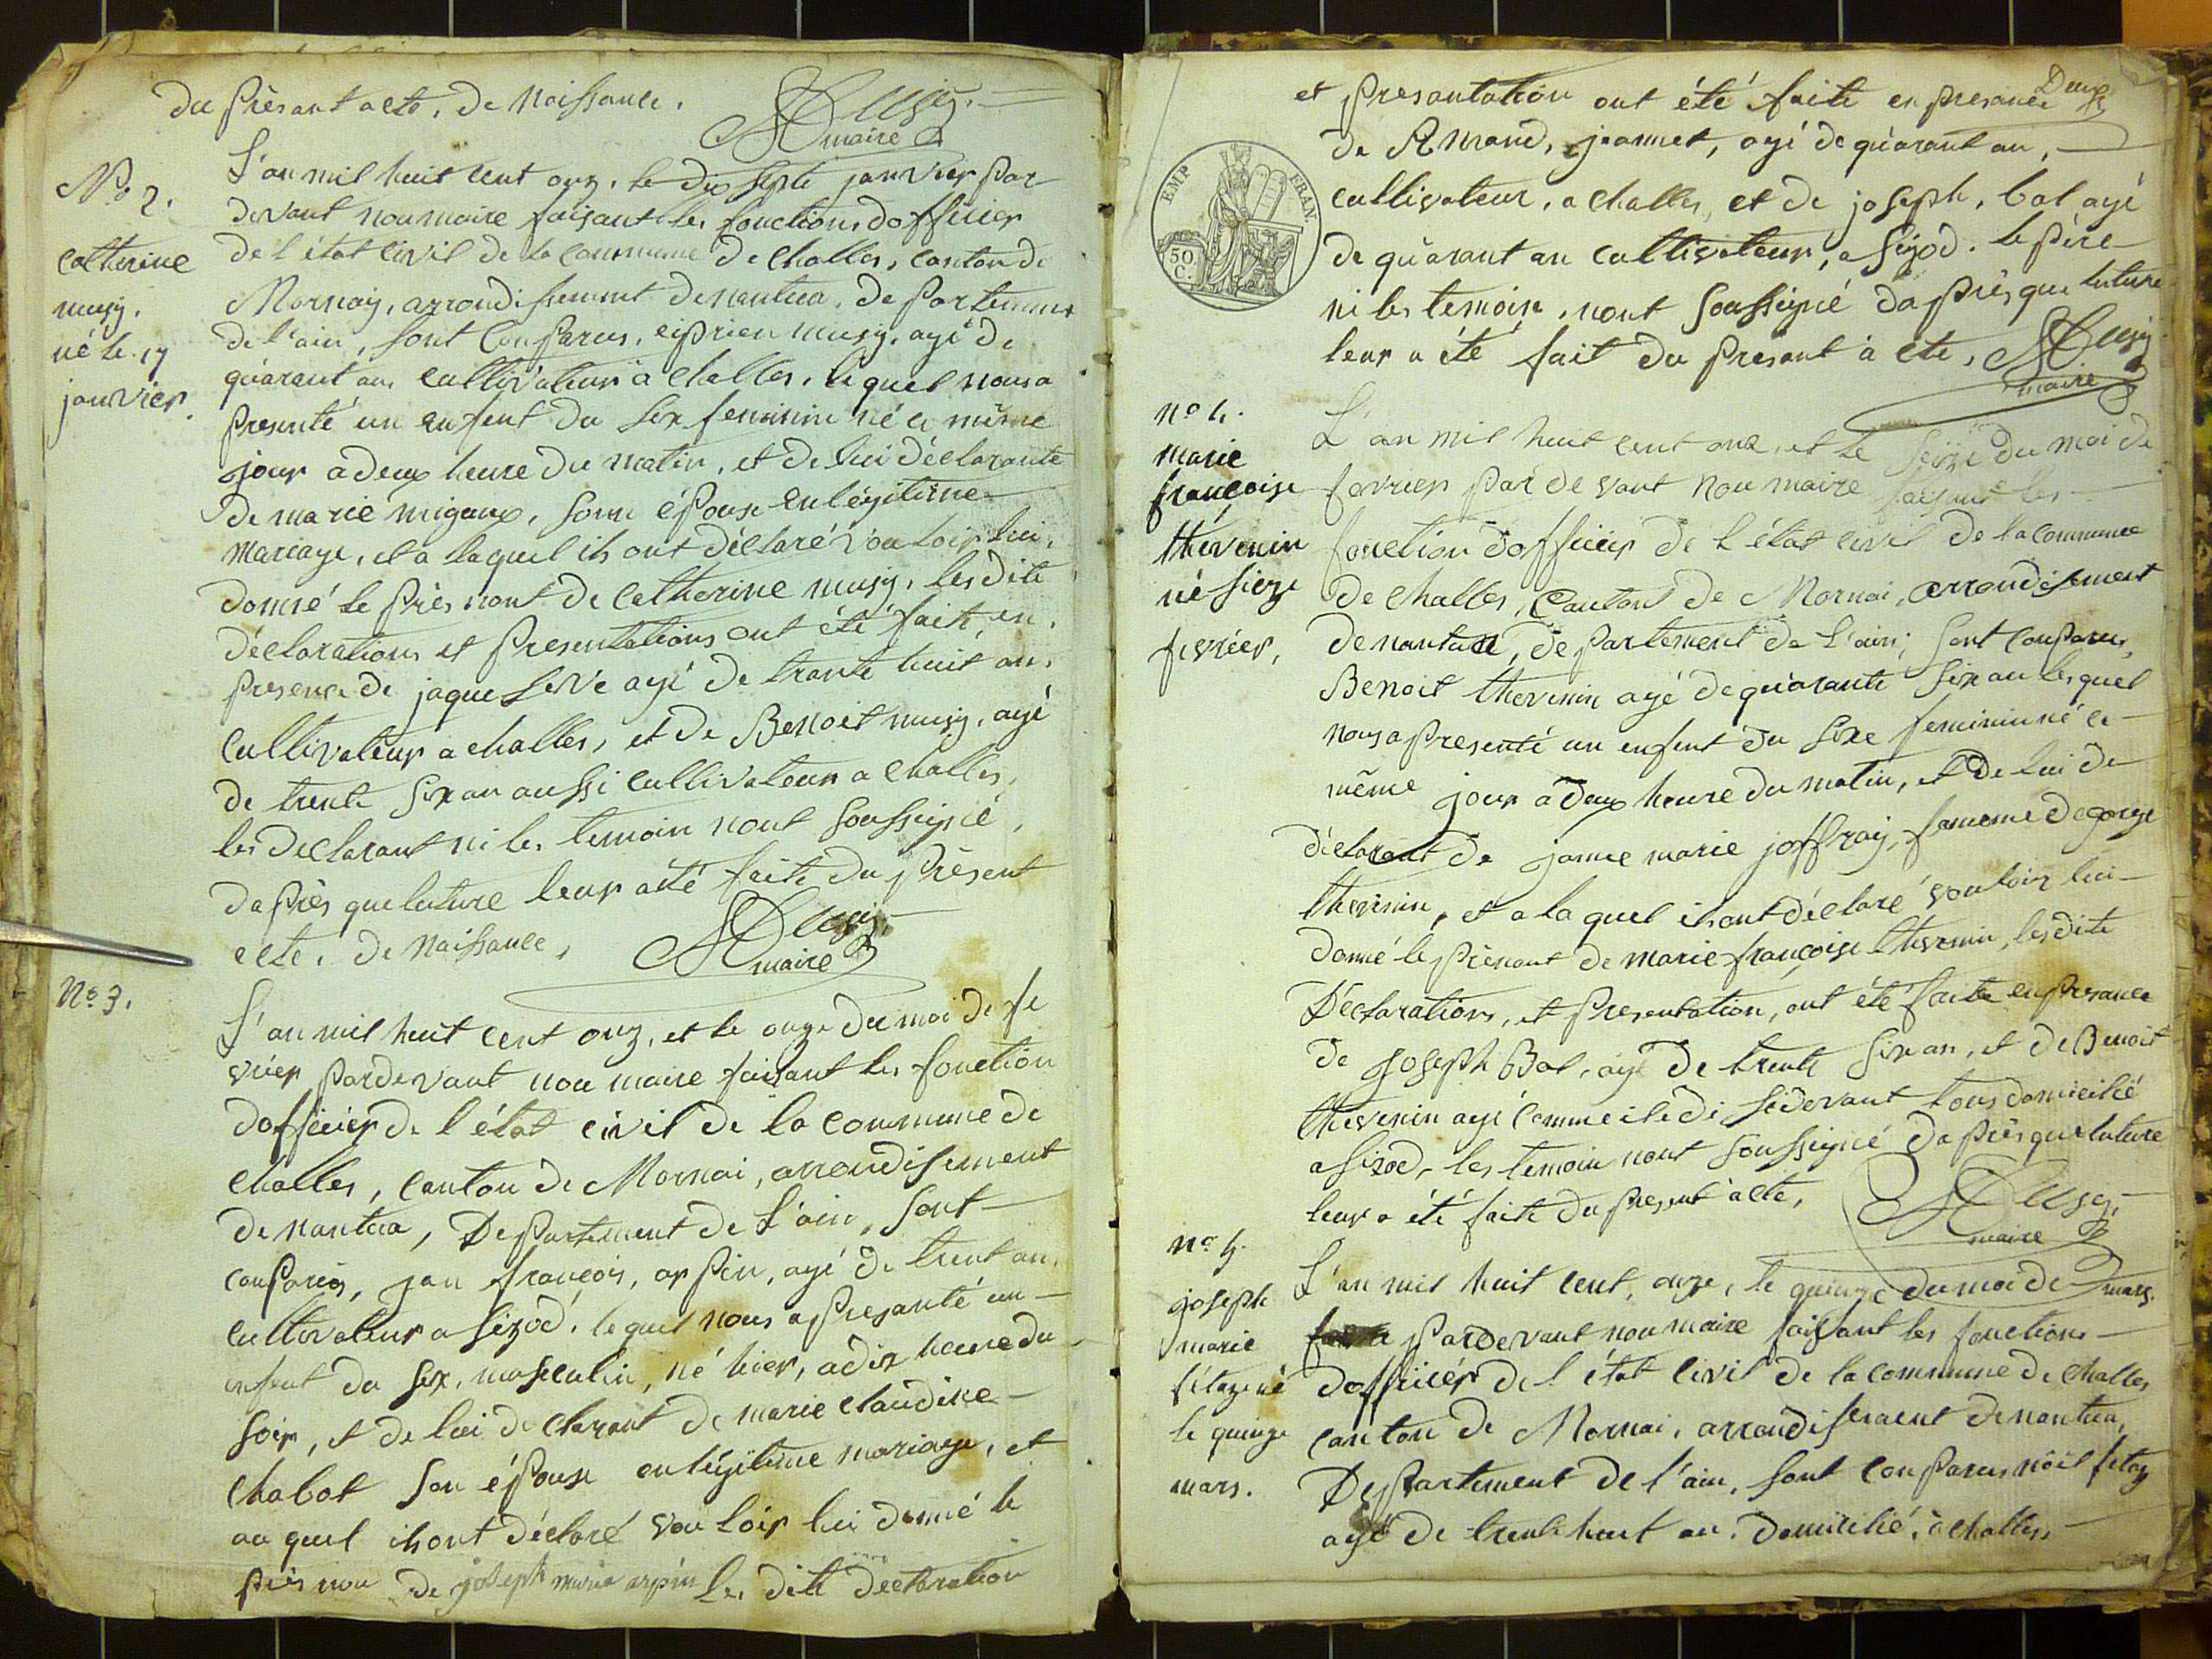 du présant acte, de Naissance.
Musy
maire
N.o 2.
catherine
musy.
né le 17
janvier.
L'an mil huit cent onz, le dix septe janvier par
devant nou maire faisant les fonctions dofficier
de l'état civil de la commune de Challes, canton de
Mornay, arrondissement de nantua, departement
de l'ain, sont Comparus, ciprien musy, agé de
quarant ans cultivateur a Challes, lequel nous a
presenté un enfent du sex feminin né ce même
jour a deux heure du matin, et de lui déclarante
de marie migeaux, sonne épouse en légitime
mariage, et a laquel ils ont déclaré vouloir lui,
donné le près nont de Catherine musy, les dite
déclarations et presentations ont été fait, en,
presence de jaque seve agé de trante huit an,
cultivateur a challes, et de Benoit musy, agé
de trente six an aussi cultivateur a Challes,
les declarant ni les temoin nont soussigné,
daprès que luture leur a été faite du présent
acte, de Naissance,
Musy
maire
N.o 3.
L'an mil huit cent onz, et le onze du moi de fe
vrier pardevant nou maire faisant les fonction
dofficier de l'état civil de la commune de
Challes, canton de Mornai, arrondisement
de nantua, Departement de L'ain, sont
conparus, jan françois, arpin, agé de trent an,
cultivateur a sizod, lequel nous a presanté un
enfent du sex, masculin, né hier, a dix heure du
soir, et de lui declarant de marie claudine
Chabot son épouse en légitime mariage, et
au quel ihont déclaré vouloir lui donné le
près nom de joseph marie arpin les dite declaration
Deux
et presantation ont été faite en presance
de Armand, jeannet, agé de quarant an,
cultivateur, a challes, et de joseph, bal agé
de quarant an cultivateur, a sizod. le père
ni les temoin, nont soussigné daprès que luture
leur a été fait du presant a cte,
Musy
maire
EMP
FRAN.
50.
C.
n.o 4.
marie
françoise
thévenin
né sieze
fevrier,
L'an mil huit cent onz, et le seize du moi de
fevrier par devant nou maire faisant les
fonction dofficier de l'état civil de la commune
de challes, Canton de Mornai, arrondisement
de nantua, departement de L'ain, sont conparus,
Benoit thevenin agé de quarante six an lesquel
nous a presenté un enfent du sexe feminin né ce
même jour a deux heure du matin, et de lui de
déclarant de janne marie joffray, famme de gorge
thevenin, et a la quel ihont déclaré vouloir lui
donné le prénont de marie françoise thevenin, les dite
Déclarations, et presentation, ont été faite en presance
de joseph Bal, agé de trente six an, et de Benoit
thevenin agé comme ile di sidevant tous domicilié
a sizod, les temoin nont soussigné daprès que luture
leur a été faite du present acte,
Musy
maire
n.o 5.
joseph
marie
fétaz né
le quinze
mars.
L'an mil huit cent, onze, le quinze du moi de mars,
pardevant nou maire faisant les fonctions
dofficier de l'état civil de la commune de Challes
canton de Mornai, arrondissement de nantua,
Departement de l'ain, sont conparus nöel fetaz
agé de trente huit an domicilié, a challes